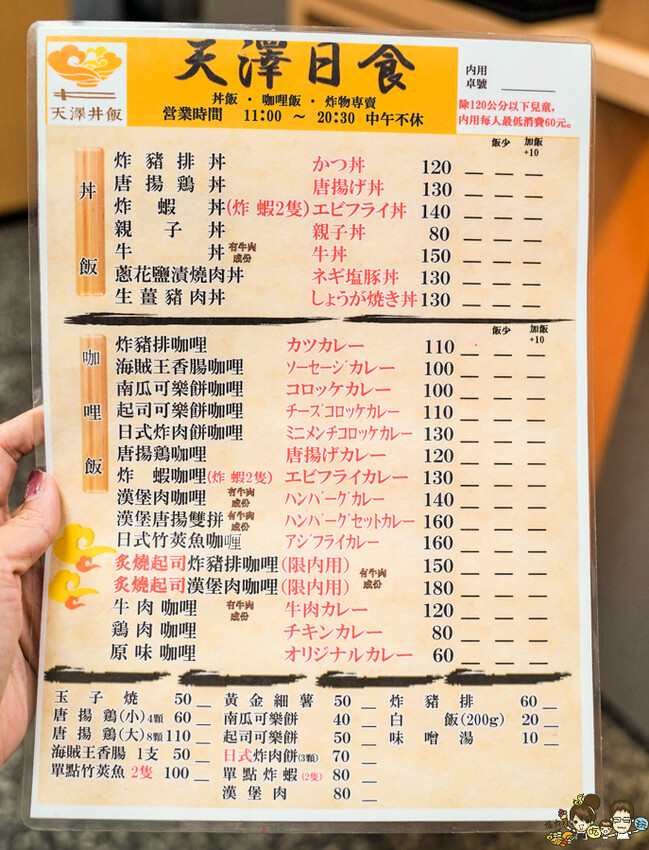 天澤丼飯
天澤日食
丼飯・咖哩飯・炸物專賣
營業時間 11:00 ～ 20:30 中午不休
內用
卓號
除120公分以下兒童,
內用每人最低消費60元。
飯少 加飯+10
丼飯
炸豬排丼 かつ丼 120
唐揚鶏丼 唐揚げ丼 130
炸蝦丼(炸蝦2隻) エビフライ丼 140
親子丼 親子丼 80
牛丼 有牛肉成份 牛丼 150
蔥花鹽漬燒肉丼 ネギ塩豚丼 130
生薑豬肉丼 しょうが焼き丼 130
飯少 加飯+10
咖哩飯
炸豬排咖哩 カツカレー 110
海賊王香腸咖哩 ソーセージカレー 100
南瓜可樂餅咖哩 コロッケカレー 100
起司可樂餅咖哩 チーズコロッケカレー 110
日式炸肉餅咖哩 ミニメンチコロッケカレー 130
唐揚鶏咖哩 唐揚げカレー 120
炸蝦咖哩(炸蝦2隻) エビフライカレー 130
漢堡肉咖哩 有牛肉成份 ハンバーグカレー 140
漢堡唐揚雙拼 有牛肉成份 ハンバーグセットカレー 160
日式竹莢魚咖哩 アジフライカレー 160
炙燒起司炸豬排咖哩(限內用) 150
炙燒起司漢堡肉咖哩(限內用) 有牛肉成份 180
牛肉咖哩 有牛肉成份 牛肉カレー 120
鶏肉咖哩 チキンカレー 80
原味咖哩 オリジナルカレー 60
玉子燒 50
唐揚鶏(小)4顆 60
唐揚鶏(大)8顆 110
海賊王香腸 1支 50
單點竹莢魚 2隻 100
黃金細薯 50
南瓜可樂餅 40
起司可樂餅 50
日式炸肉餅(3顆) 70
單點炸蝦(2隻) 80
漢堡肉 80
炸豬排 60
白飯(200g) 20
味噌湯 10